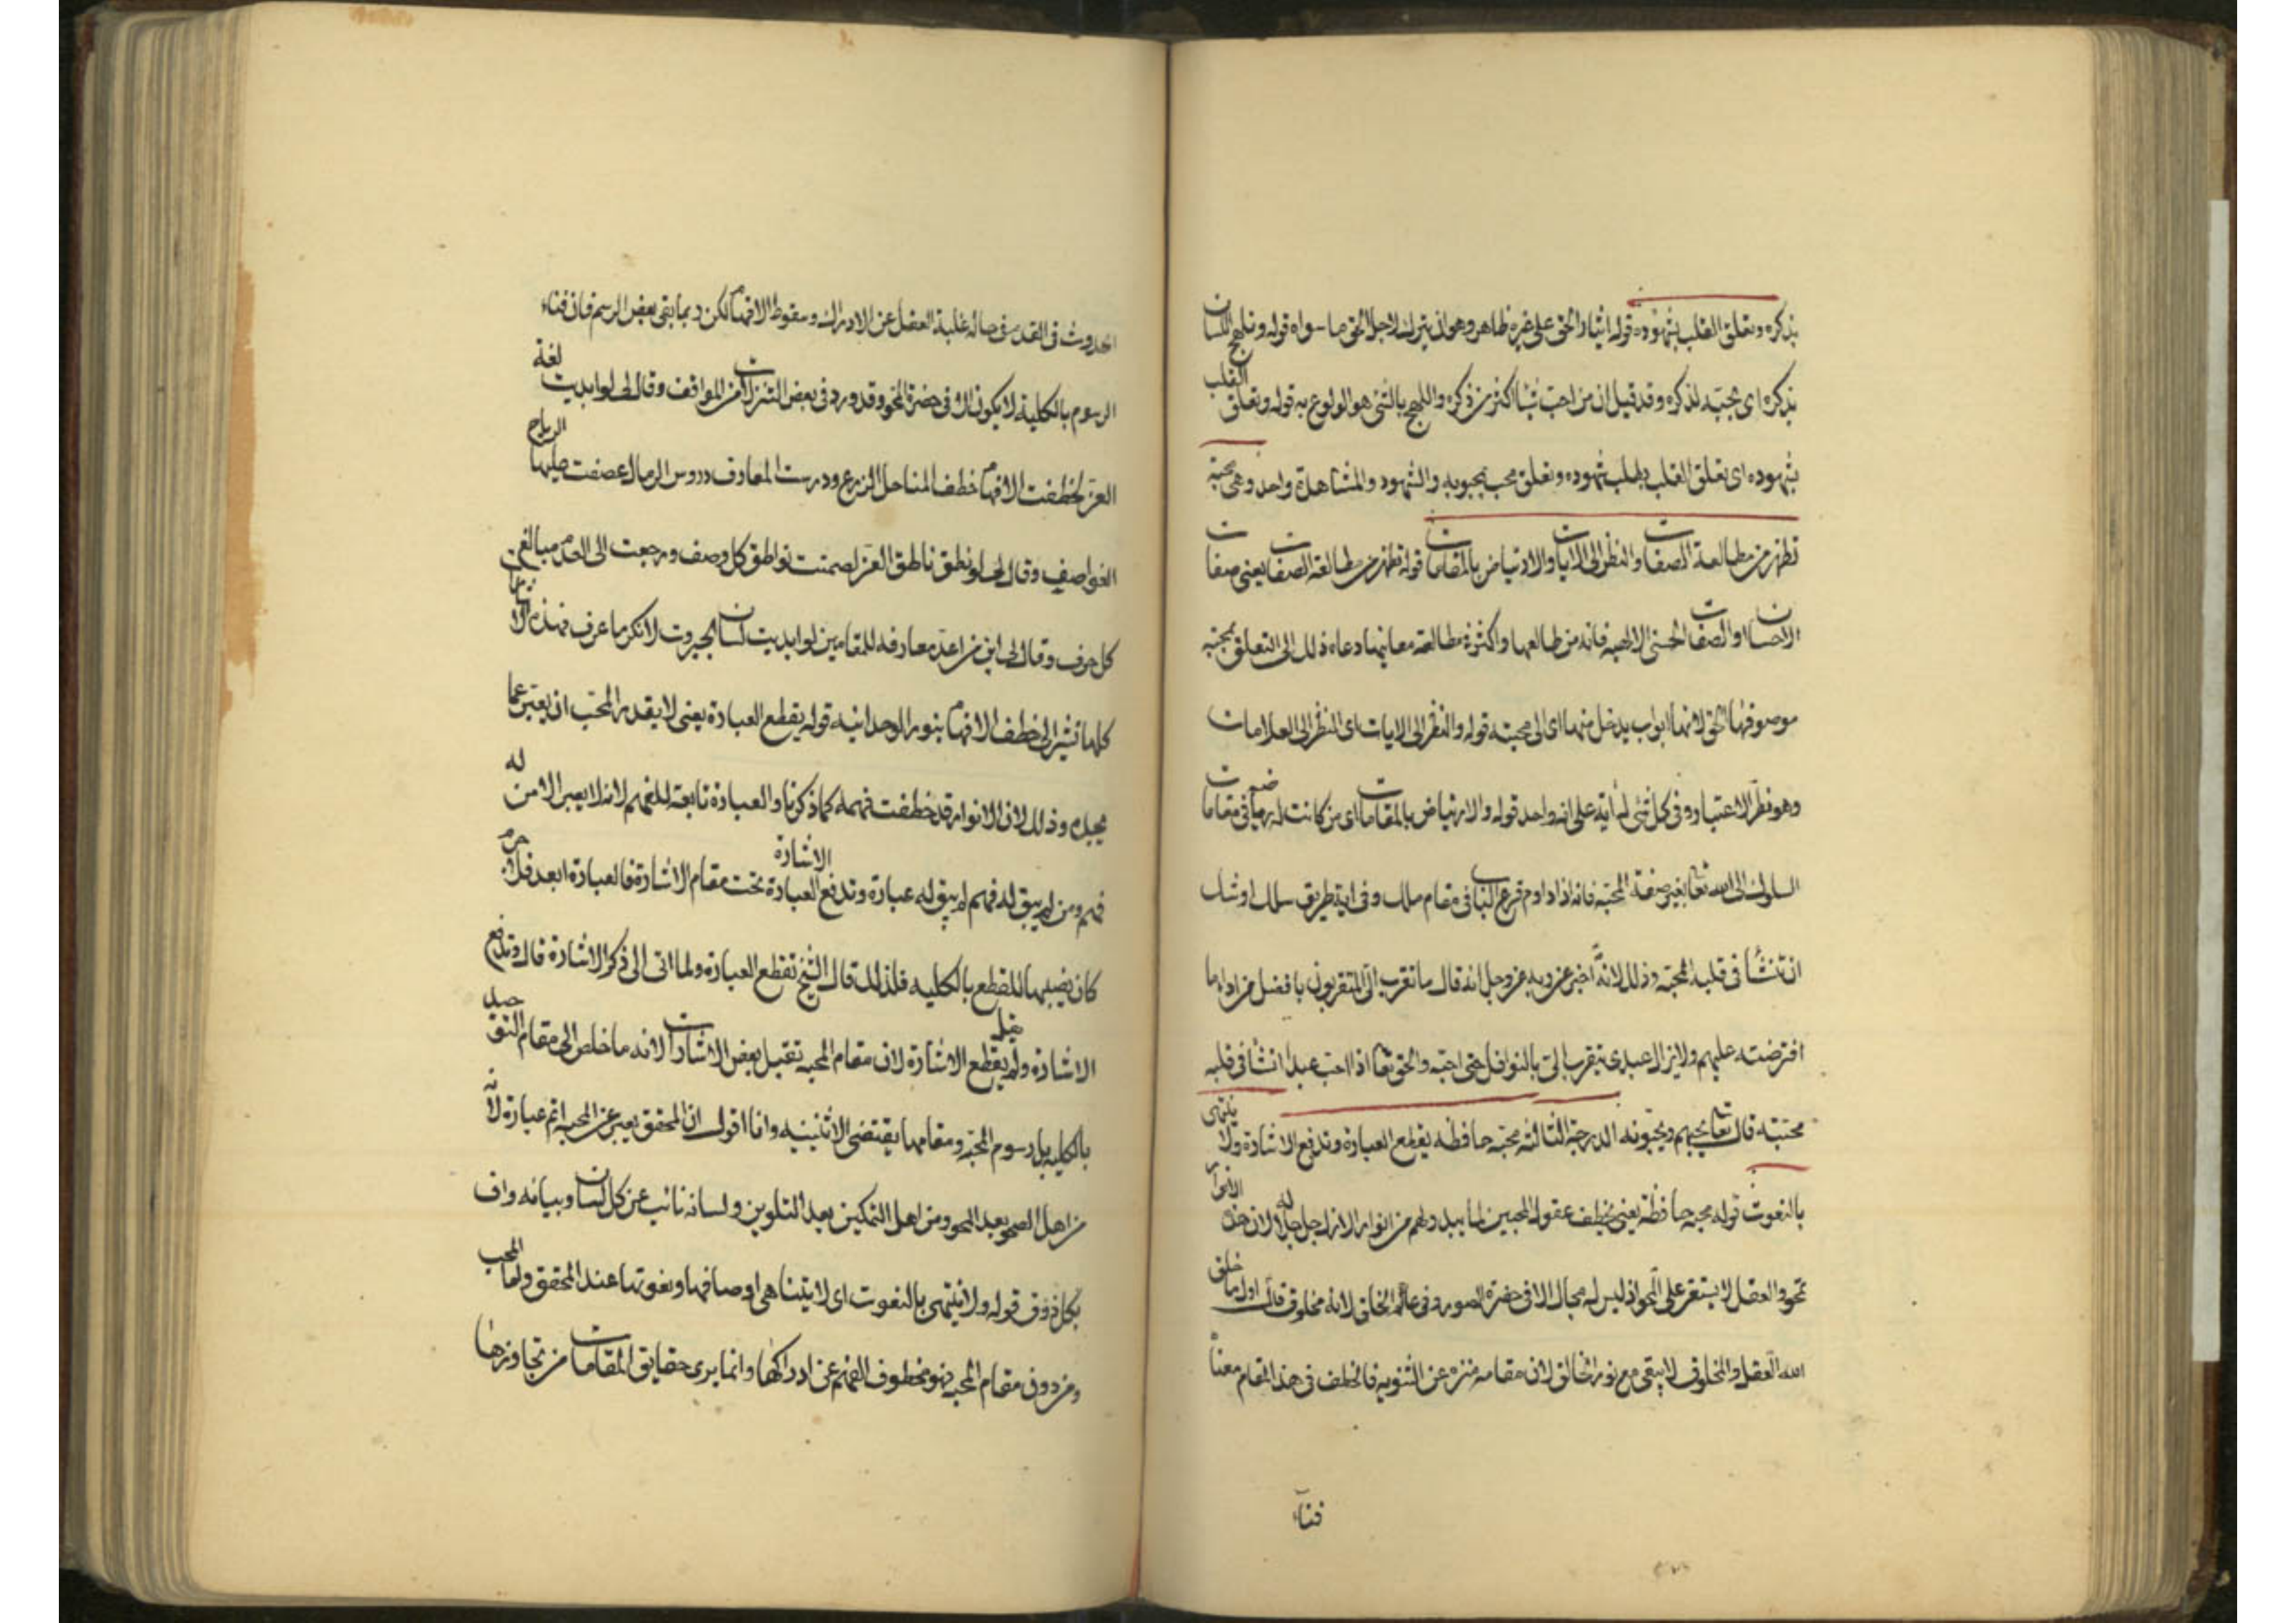 بذكره وتعلق القلب بشهوده قوله ايثار الحق على غيره ظاهر وهو ان يترك لاجل الحق ما سواه قوله وتلهج اللسان
بذكره اى محبته لذكره وقد قيل ان من احب شيئا اكثر من ذكره واللهج بالشئ هو الولوع به قوله وتعلق القلب
بشهوده اى تعلق القلب بطلب شهوده وتعلق محب بمحبوبه والشهود والمشاهدة واحد وهى محبة
تظهر من مطالعة الصفات والنظر الى الايات والارتياض بالمقامات قوله تظهر من مطالعة الصفات يعنى صفات
الاحسان والصفات الحسنى الالهية فانه من طالعها واكثر مطالعة معانيها دعاه ذلك الى التعلق بمحبة
موصوفها الحق لانها ابواب يدخل منها اى الى محبته قوله والنظر الى الايات اى النظر الى العلامات
وهو نظر الاعتبار وفى كل شئ له اية على انه واحد قوله والارتياض بالمقامات اى من كانت له رياضة فى مقامات
السلوك الى الله تعا بغير صفة المحبة فانه اذا داوم قرع الباب فى مقام سلك وفى اية طريق سلك اوشك
ان تنشأ فى قلبه المحبة وذلك لانه اخبر عن ربه عز وجل انه قال ما تقرب الى المتقربون بافضل من اداء ما
افترضته عليهم ولا يزال عبدى يتقرب الى بالنوافل حتى احبه والحق تعا اذا احب عبدا انشا فى قلبه
محبته قال تعا يحبهم ويحبونه الدرجة الثالثة محبة خاطفة يقطع العبارة وتدفع الاشارة ولا ينتهى
بالنعوت قوله محبة خاطفة يعنى يخطف عقول المحبين لما يبدو لهم من انوار الازل جل جلاله لان هذه الانوار
تمحو والعقل لا يستقر على المحو اذ ليس له مجال الا فى حضرة الصور وفى عالم الخلق لانه مخلوق قال اول ما خلق
الله العقل والمخلوق لا يبقى مع نور الخالق لان مقامه منزه عن الثنوية فالخطف فى هذا المقام معناه
فناء
الحدوث فى القدم فى حالة غلبة العقل عن الادراك وسقوط الافهام لكن ربما بقى بعض الرسم فان فناء
الرسوم بالكلية لا يكون الا فى حضرة المحو وقد ورد فى بعض التنزلات من المواقف وقال لى لو ابديت لغة
العز لخطفت الافهام خطف المناجل الزرع ودرست المعارف دروس الرمال عصفت عليها الرياح
العواصف وقال لى لو نطق ناطق العز لصمتت نواطق كل وصف ورجعت الى العدم مبالغ
كل حرف وقال لى اين من اعد معارفه للقائى لو ابديت لسان الجبروت لانكر ما عرف فهذه الاشارات
كلها تشير الى خطف الافهام بنور الوحدانية قوله يقطع العبارة يعنى لا يقدر المحب ان يعبر عما
يجده وذلك لان الانوار قد خطفت فهمه كما ذكرنا والعبارة تابعة للفهم لانه لا يعبر الا من له
فهم ومن لم يبق له فهم لم يبق له عبارة وتدفع الاشارة العبارة تحت مقام الاشارة فالعبارة ابعد فلا جرم
كان نصيبها القطع بالكلية فلذلك قال الشيخ تقطع العبارة ولما اتى الى ذكر الاشارة قال وتدفع
الاشارة ولم يقل يقطع الاشارة لان مقام المحبة تقبل بعض الاشارات لانه ما خلص الى مقام التوحيد
بالكلية بل رسوم المحبة ومقامها يقتضى الاثنينية وانا اقول ان المحقق يعبر عن المحبة اتم عبارة لانه
من اهل الصحو بعد المحو ومن اهل التمكين بعد التلوين ولسانه نائب عن كل لسان وبيانه واف
بكل ذوق قوله ولا ينتهى بالنعوت اى لا يتناهى اوصافها ونعوتها عند المحقق واما المحب
ومن دون مقام المحبة فهو مخطوف الفهم عن ادراكها وانما يرى حقايق المقامات من تجاوزها